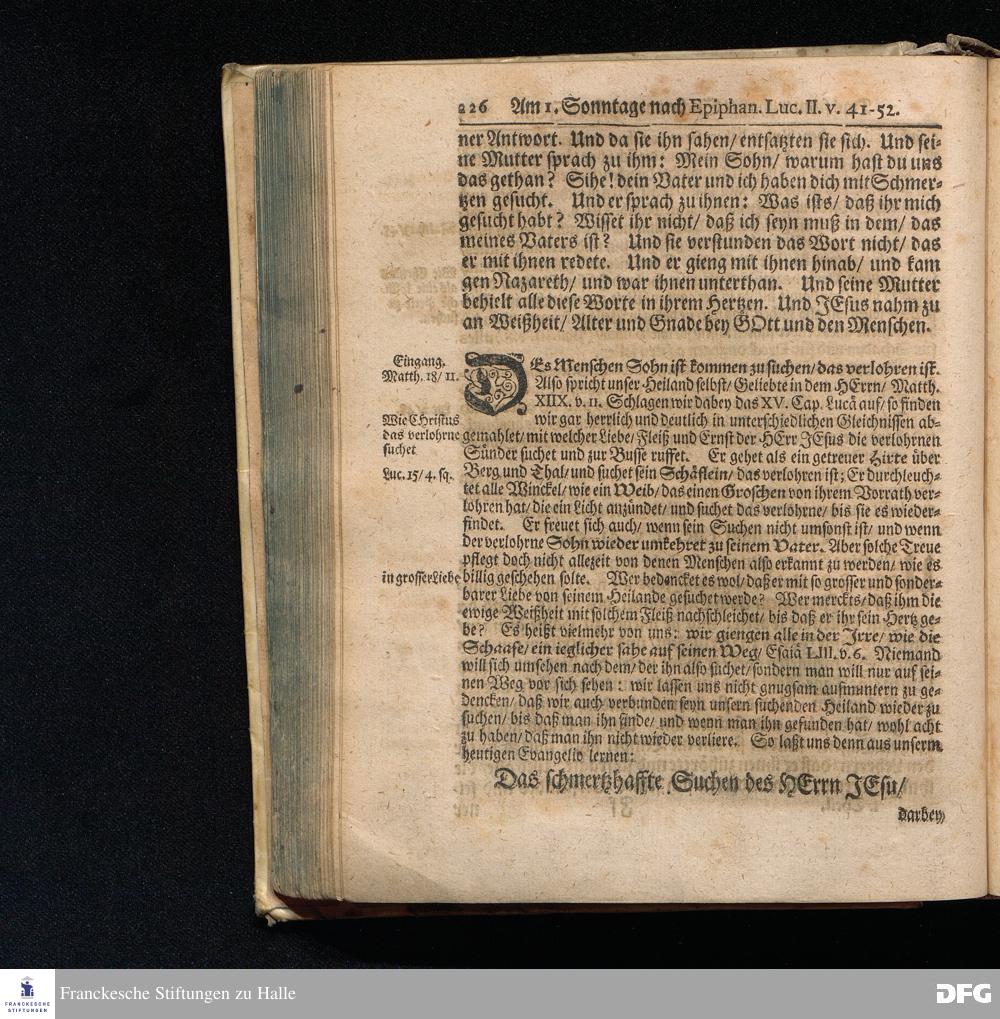 226 Am 1. Sonntage nach Epiphan. Luc. II. v. 41-52.
ner Antwort. Und da sie ihn sahen/ entsatzten sie sich. Und sei-
ne Mutter sprach zu ihm: Mein Sohn/ warum hast du uns
das gethan? Sihe! dein Vater und ich haben dich mit Schmer-
tzen gesucht. Und er sprach zu ihnen: Was ists/ daß ihr mich
gesucht habt? Wisset ihr nicht/ daß ich seyn muß in dem/ das
meines Vaters ist? Und sie verstunden das Wort nicht/ das
er mit ihnen redete. Und er gieng mit ihnen hinab/ und kam
gen Nazareth/ und war ihnen unterthan. Und seine Mutter
behielt alle diese Worte in ihrem Hertzen. Und JEsus nahm zu
an Weißheit/ Alter und Gnade bey GOtt und den Menschen.
Eingang.
Matth. 18/ 11.
DEs Menschen Sohn ist kommen zu suchen/ das verlohren ist.
Also spricht unser Heiland selbst/ Geliebte in dem HErrn/ Matth.
XIIX. v. 11. Schlagen wir dabey das XV. Cap. Lucä auf/ so finden
wir gar herrlich und deutlich in unterschiedlichen Gleichnissen ab-
Wie Christus
das verlohrne
suchet
Luc. 15/ 4. sq.
gemahlet/ mit welcher Liebe/ Fleiß und Ernst der HErr JEsus die verlohrnen
Sünder suchet und zur Busse ruffet. Er gehet als ein getreuer Hirte über
Berg und Thal/ und suchet sein Schäflein/ das verlohren ist; Er durchleuch-
tet alle Winckel/ wie ein Weib/ das einen Groschen von ihrem Vorrath ver-
lohren hat/ die ein Licht anzündet/ und suchet das verlohrne/ bis sie es wieder-
findet. Er freuet sich auch/ wenn sein Suchen nicht umsonst ist/ und wenn
der verlohrne Sohn wieder umkehret zu seinem Vater. Aber solche Treue
pflegt doch nicht allezeit von denen Menschen also erkannt zu werden/ wie es
in grosser Liebe
billig geschehen solte. Wer bedencket es wol/ daß er mit so grosser und sonder-
barer Liebe von seinem Heilande gesuchet werde? Wer merckts/ daß ihm die
ewige Weißheit mit solchem Fleiß nachschleichet/ bis daß er ihr sein Hertz ge-
be? Es heißt vielmehr von uns: wir giengen alle in der Jrre/ wie die
Schaafe/ ein ieglicher sahe auf seinen Weg/ Esaiä LIII. v. 6. Niemand
will sich umsehen nach dem/ der ihn also suchet/ sondern man will nur auf sei-
nen Weg vor sich sehen: wir lassen uns nicht gnugsam aufmuntern zu ge-
dencken/ daß wir auch verbunden seyn unsern suchenden Heiland wieder zu
suchen/ bis daß man ihn finde/ und wenn man ihn gefunden hat/ wohl acht
zu haben/ daß man ihn nicht wieder verliere. So laßt uns denn aus unserm
heutigen Evangelio lernen:
Das schmertzhaffte Suchen des HErrn JEsu/
darbey
FRANCKESCHE
STIFTUNGEN
Franckesche Stiftungen zu Halle
DFG